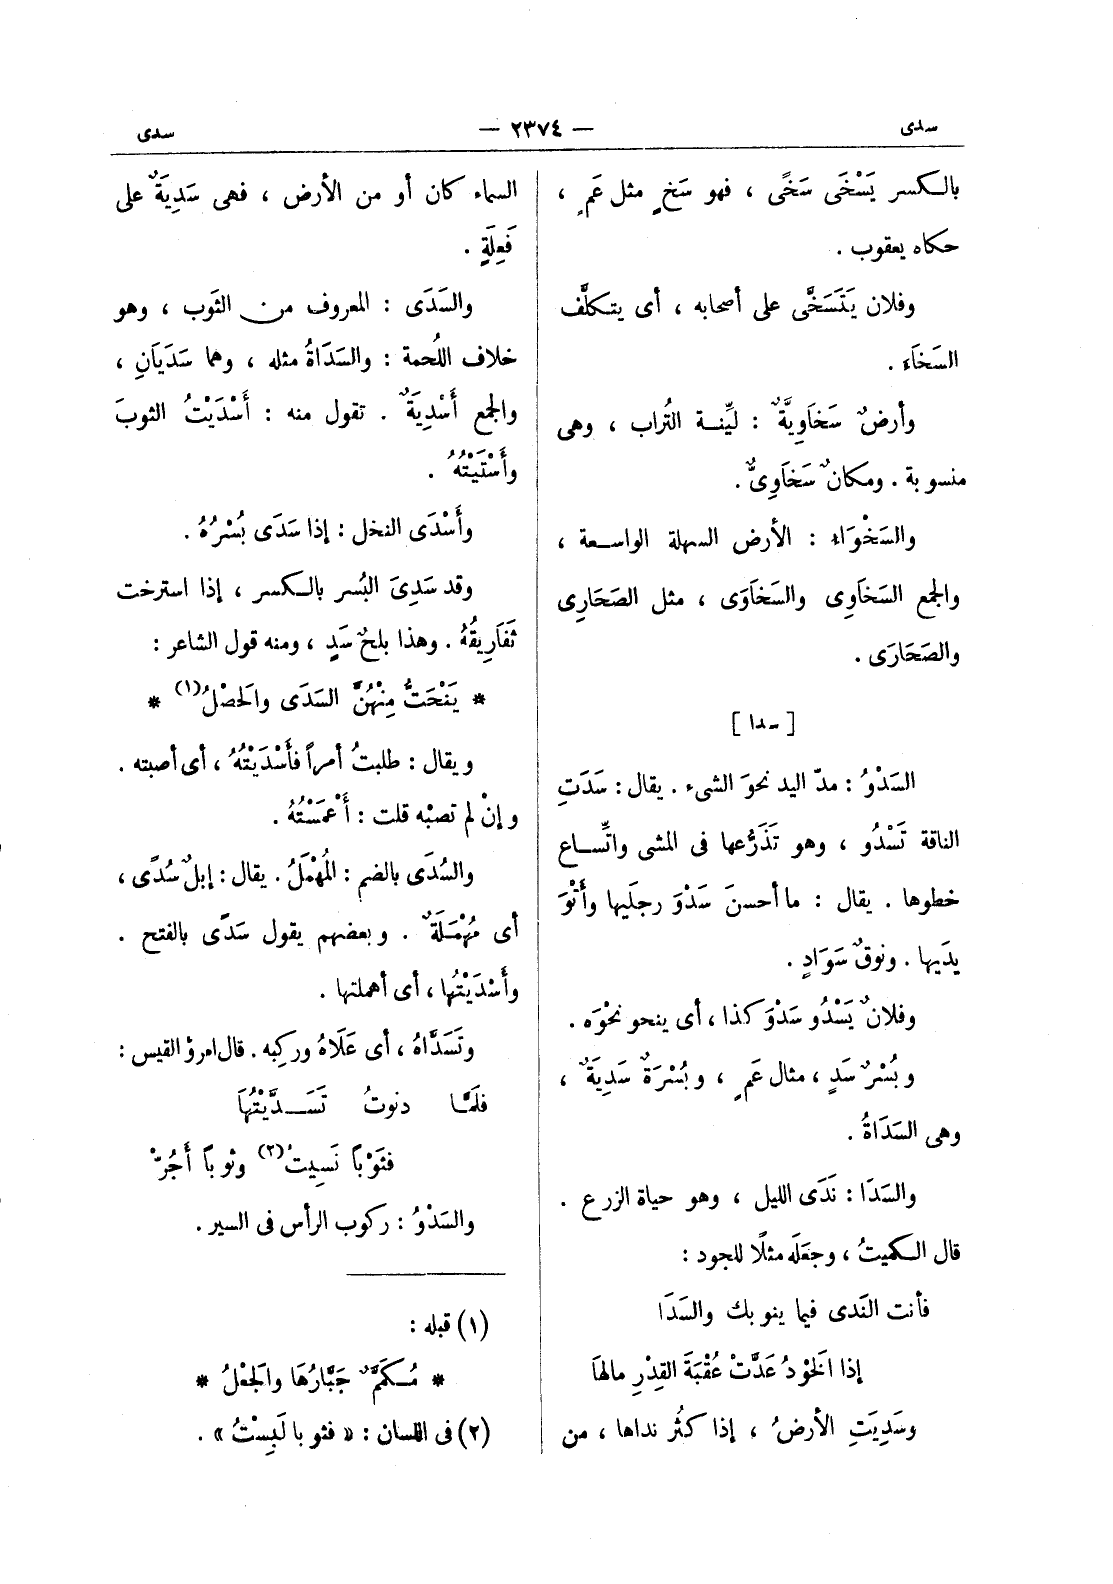 سدى — ٢٣٧٤ — سدى
بالكسر يَسْخَى سَخًى ، فهو سَخٍ مثل عَمٍ ،
حكاه يعقوب .
وفلان يَتَسَخَّى على أصحابه ، أى يتكلَّف
السخاَء .
وأرضٌ سَخَاوِيَّةٌ : ليِّنة التُراب ، وهى
منسوبة . ومكانٌ سَخَاوِىٌّ .
والسَخْوَاءُ : الأرض السهلة الواسعة ،
والجمع السَخَاوِى والسَخَاوَى ، مثل الصَحَارِى
والصَحَارَى .
[ سدا ]
السَدْوُ : مدّ اليد نحوَ الشىء . يقال : سَدَتِ
الناقة تَسْدُو ، وهو تَذَرُّعها فى المشى واتِّساع
خطوها . يقال : ما أحسنَ سَدْوَ رجلَيها وأَتْوَ
يدَيها . ونوقٌ سَوَادٍ .
وفلانٌ يَسْدُو سَدْوَ كذا ، أى ينحو نحْوَه .
وبُسْرٌ سَدٍ ، مثال عَمٍ ، وبُسْرَةٌ سَدِيَةٌ ،
وهى السَدَاةُ .
والسَدَا : نَدَى الليل ، وهو حياة الزرع .
قال الكميتُ ، وجعَلَه مثلًا للجود :
فأنت النَدى فيما ينوبك والسَدَا
إذا الخَوْدُ عَدَّتْ عُقْبَةَ القِدْرِ مالهَا
وسَدِيَتِ الأرضُ ، إذا كثُر نداها ، من
السماء كان أو من الأرض ، فهى سَدِيَةٌ على
فَعِلَةٍ .
والسَدَى : المعروف من الثوب ، وهو
خلاف اللُحمة : والسَدَاةُ مثله ، وهما سَدَيَانِ ،
والجمع أَسْدِيَةٌ . تقول منه : أَسْدَيْتُ الثوبَ
وأَسْتَيْتُهُ .
وأَسْدَى النخل : إذا سَدَى بُسْرُهُ .
وقد سَدِىَ البُسر بالكسر ، إذا استرخت
ثَفَارِيقُهُ . وهذا بلحٌ سَدٍ ، ومنه قول الشاعر :
* يَنْحَتُّ مِنْهُنَّ السَدَى والحَصْلُ(١) *
ويقال : طلبتُ أمراً فأَسْدَيْتُهُ ، أى أصبته .
وإنْ لم تصبْه قلت : أَعْمَسْتُهُ .
والسُدَى بالضم : المُهْمَلُ . يقال : إبلٌ سُدًى ،
أى مُهْمَلَةٌ . وبعضهم يقول سَدًى بالفتح .
وأَسْدَيْتُها ، أى أهملتها .
وتَسَدَّاهُ ، أى عَلَاهُ وركبه . قال امرؤ القيس :
فلمَّا دنوتُ تَسَدَّيْتُهَا
فثَوْباً نَسِيتُ(٢) وثوباً أَجُرّْ
والسَدْوُ : ركوب الرأس فى السير .
(١) قبله :
* مُكَمَّمٌ جَبَّارُهَا والجَعْلُ *
(٢) فى اللسان : « فثوبا لَبِسْتُ » .